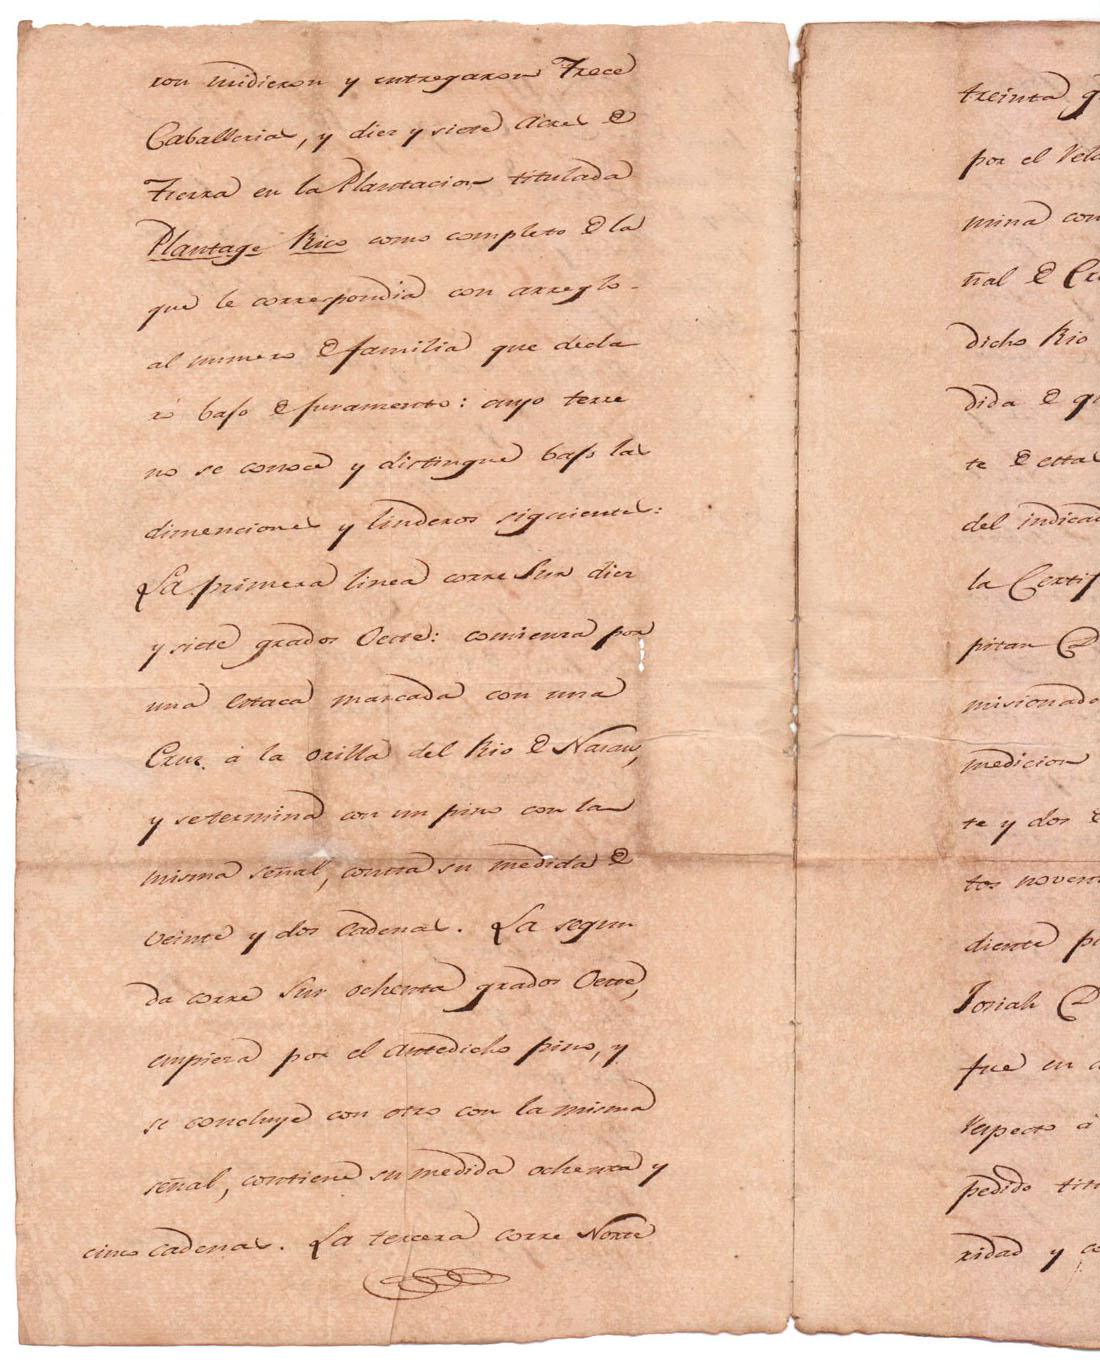 ron midieron y entregaron Trece
Caballerias, y diez y siete Acres de
Tierra en la Plantacion titulada
Plantage Rico como completo de la
que le correspondia con arreglo
al numero de familia que decla
ró bajo de juramento: cuyo terre
no se conoce y distingue bajo las
dimenciones y linderos siguientes:
La primera linea corre Sur diez
y siete grados Oeste: comienza por
una estaca marcada con una
Cruz à la orilla del Rio de Nasau,
y se termina con un pino con la
misma señal, contra su medida de
veinte y dos Cadenas. La segun
da corre Sur ochenta grados Oeste,
empieza por el antedicho pino, y
se concluye con otro con la misma
señal, contiene su medida ochenta y
cinco cadenas. La tercera corre Norte
treinta
por el
mina con
ñal de
dicho Rio
dida de
te de estas
del
la
pitan
misionado
medicion
te y dos
tos
diente
Josiah
fue en
respecto à
pedido
ridad y